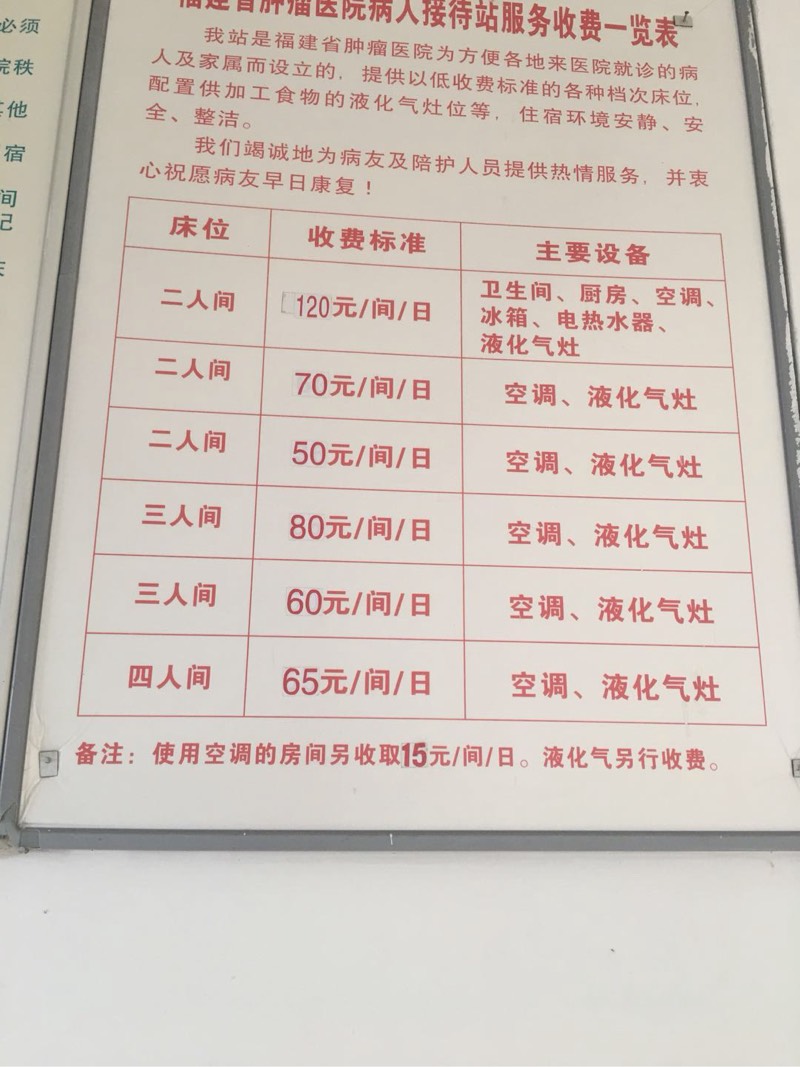 福建省肿瘤医院病人接待站服务收费一览表
我站是福建省肿瘤医院为方便各地来医院就诊的病
人及家属而设立的，提供以低收费标准的各种档次床位，
配置供加工食物的液化气灶位等，住宿环境安静、安
全、整洁。
我们竭诚地为病友及陪护人员提供热情服务，并衷
心祝愿病友早日康复！
床位 收费标准 主要设备
二人间 120元/间/日 卫生间、厨房、空调、
冰箱、电热水器、
液化气灶
二人间 70元/间/日 空调、液化气灶
二人间 50元/间/日 空调、液化气灶
三人间 80元/间/日 空调、液化气灶
三人间 60元/间/日 空调、液化气灶
四人间 65元/间/日 空调、液化气灶
备注：使用空调的房间另收取15元/间/日。液化气另行收费。
必须
院秩
其他
宿
间
记